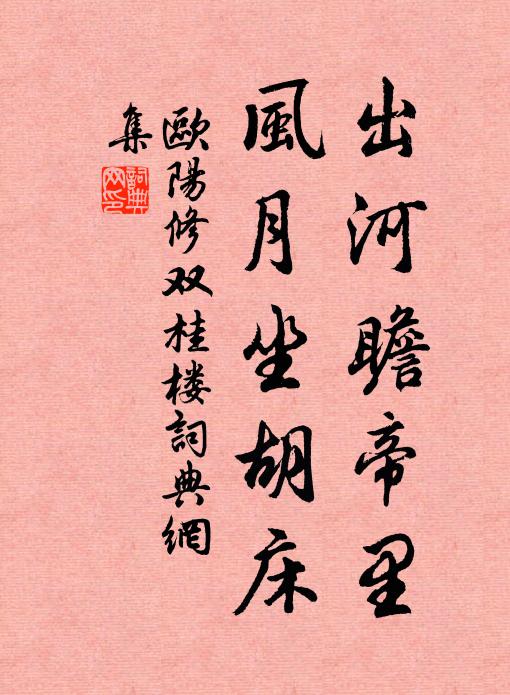 出河瞻帝里
風月坐胡床
歐陽修双桂楼詞典網
集
詞典网印